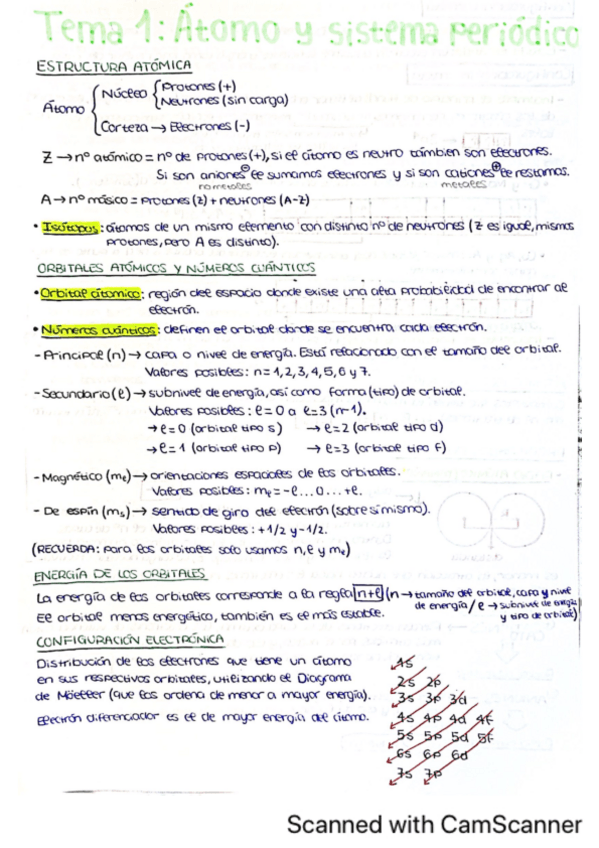 Tema 1: Átomo y sistema periódico
ESTRUCTURA ATÓMICA
Átomo { Núcleo { Protones (+)
Neutrones (sin carga)
Corteza → Electrones (-)
Z → nº atómico = nº de protones (+), si el átomo es neutro también son electrones.
Si son aniones⊖ le sumamos electrones y si son cationes⊕ le restamos.
no metales metales
A → nº másico = Protones (Z) + neutrones (A-Z)
• Isótopos: átomos de un mismo elemento con distinto nº de neutrones (Z es igual, mismos
protones, pero A es distinto).
ORBITALES ATÓMICOS Y NÚMEROS CUÁNTICOS
• Orbital atómico: región del espacio donde existe una alta probabilidad de encontrar al
electrón.
• Números cuánticos: definen el orbital donde se encuentra cada electrón.
- Principal (n) → capa o nivel de energía. Está relacionado con el tamaño del orbital.
Valores posibles: n = 1, 2, 3, 4, 5, 6 y 7.
- Secundario (l) → subnivel de energía, así como forma (tipo) de orbital.
Valores posibles: l = 0 a l = 3 (n-1).
→ l = 0 (orbital tipo s) → l = 2 (orbital tipo d)
→ l = 1 (orbital tipo p) → l = 3 (orbital tipo f)
- Magnético (ml) → orientaciones espaciales de los orbitales.
Valores posibles: ml = -l ... 0 ... +l.
- De espín (ms) → sentido de giro del electrón (sobre sí mismo).
Valores posibles: +1/2 y -1/2.
(RECUERDA: para los orbitales solo usamos n, l y ml)
ENERGÍA DE LOS ORBITALES
La energía de los orbitales corresponde a la regla n+l (n → tamaño del orbital, capa y nivel
de energía / l → subnivel de energía
y tipo de orbital)
El orbital menos energético, también es el más estable.
CONFIGURACIÓN ELECTRÓNICA
Distribución de los electrones que tiene un átomo
en sus respectivos orbitales, utilizando el Diagrama
de Moeller (que los ordena de menor a mayor energía).
Electrón diferenciador es el de mayor energía del átomo.
1s
2s 2p
3s 3p 3d
4s 4p 4d 4f
5s 5p 5d 5f
6s 6p 6d
7s 7p
Scanned with CamScanner